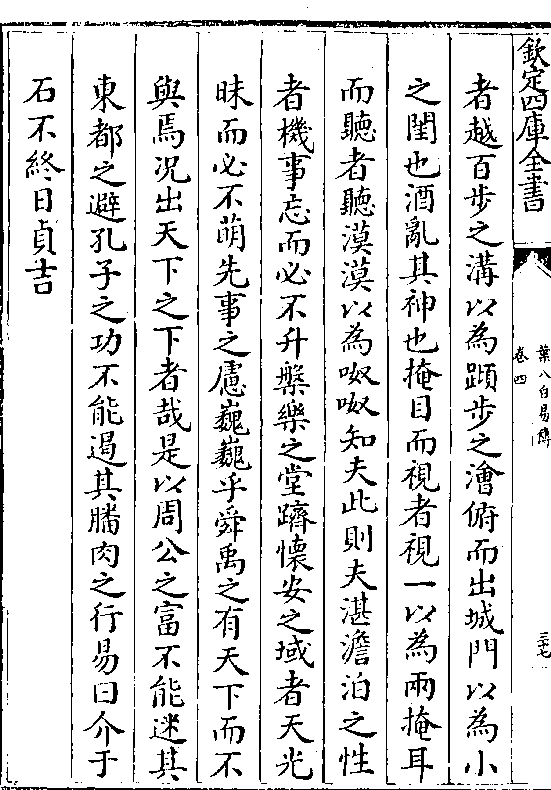 欽定四庫全書
葉八白易傳
卷四
三十七
者越百步之溝以為蹞步之澮俯而出城門以為小
之閨也酒亂其神也掩目而視者視一以為兩掩耳
而聽者聽漠漠以為呶呶知夫此則夫湛澹泊之性
者機事忘而必不升槃樂之堂躋懷安之域者天光
昧而必不萌先事之慮巍巍乎舜禹之有天下而不
與焉况出天下之下者哉是以周公之富不能迷其
東都之避孔子之功不能遏其膰肉之行易曰介于
石不終日貞吉